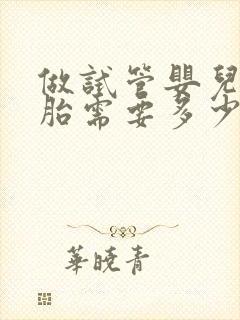 做試管嬰兒
胎需要多少
華曉青